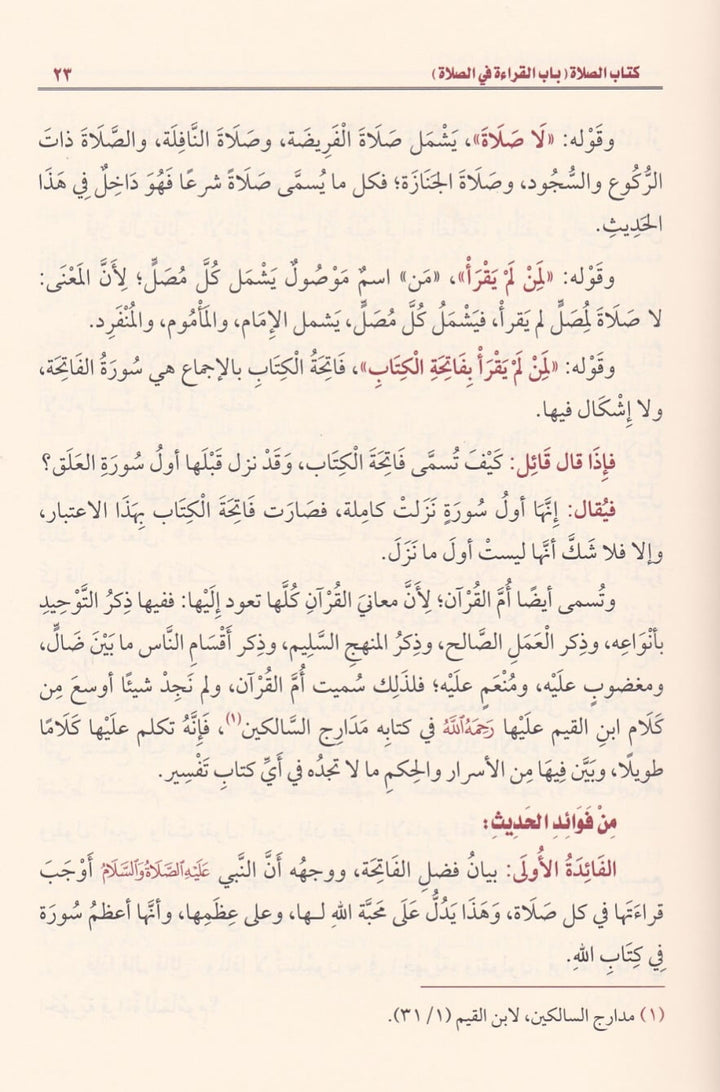 كتاب الصلاة (باب القراءة في الصلاة) ٢٣
وقَوْله: «لَا صَلَاةَ»، يَشْمَل صَلَاةَ الْفَرِيضَة، وصَلَاةَ النَّافِلَة، والصَّلَاةَ ذاتَ
الرُّكُوع والسُّجُود، وصَلَاةَ الجَنَازَة؛ فكل ما يُسمَّى صَلَاةً شرعًا فَهُوَ دَاخِلٌ فِي هَذَا
الحَدِيثِ.
وقَوْله: «لِمَنْ لَمْ يَقْرَأْ»، «مَن» اسمٌ مَوْصُولٌ يَشْمَل كُلَّ مُصَلٍّ؛ لِأَنَّ المَعْنَى:
لا صَلَاةَ لِمُصَلٍّ لم يَقرأْ، فيَشْمَلُ كُلَّ مُصَلٍّ، يَشمل الإِمَام، والمَأْمُوم، والمُنْفَرِد.
وقَوْله: «لِمَنْ لَمْ يَقْرَأْ بِفَاتِحَةِ الْكِتَابِ»، فَاتِحَةُ الْكِتَابِ بالإجماع هي سُورَةُ الفَاتِحَة،
ولا إِشْكَال فيها.
فإِذَا قال قَائِل: كَيْفَ تُسمَّى فَاتِحَةَ الْكِتَاب، وَقَدْ نزل قَبْلَها أولُ سُورَةِ العَلَق؟
فيُقال: إِنَّهَا أولُ سُورَةٍ نَزَلَتْ كامِلة، فصَارَت فَاتِحَةَ الْكِتَاب بِهَذَا الاعتبار،
وإلا فلا شَكَّ أنَّها ليستْ أولَ ما نَزَلَ.
وتُسمى أيضًا أُمَّ القُرْآن؛ لِأَنَّ معانيَ القُرْآنِ كُلَّها تعود إِلَيْها: ففيها ذِكرُ التَّوْحِيدِ
بأَنْوَاعِه، وذِكر الْعَمَلِ الصَّالح، وذِكرُ المنهجِ السَّلِيم، وذِكر أَقْسَامِ النَّاس ما بَيْنَ ضَالٍّ،
ومغضوبٍ علَيْه، ومُنْعَمٍ علَيْه؛ فلذَلِكَ سُميت أُمَّ القُرْآن، ولم نَجِدْ شيئًا أوسعَ مِن
كَلَام ابنِ القيم علَيْها رَحِمَهُ اللَّهُ في كتابِه مَدَارِج السَّالكين(١)، فَإِنَّهُ تكلم علَيْها كَلَامًا
طويلًا، وبَيَّن فِيهَا مِن الأسرار والحِكمِ ما لا تجدُه في أَيِّ كتابِ تَفْسِير.
مِنْ فَوَائدِ الحَدِيثِ:
الفَائِدَةُ الأُولَى: بيانُ فضلِ الفَاتِحَة، ووجهُه أَنَّ النَّبي عَلَيْهِ الصَّلَاةُ وَالسَّلَامُ أَوْجَبَ
قراءَتَها في كل صَلَاة، وَهَذَا يَدُلُّ عَلَى مَحَبَّة اللهِ لـها، وعلى عِظَمِها، وأنَّها أعظمُ سُورَة
فِي كِتَابِ اللهِ.
(١) مدارج السالكين، لابن القيم (١/ ٣١).